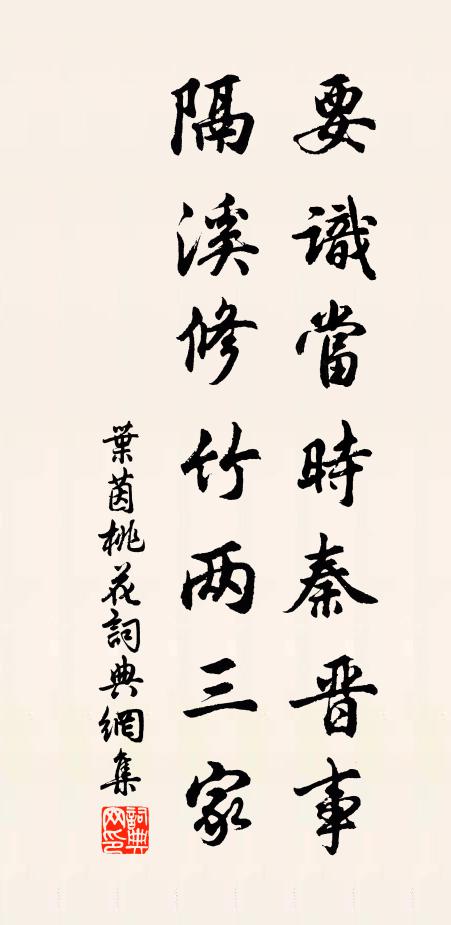 要識當時秦晋事
隔溪修竹两三家
葉茵桃花詞典網集
詞典网印